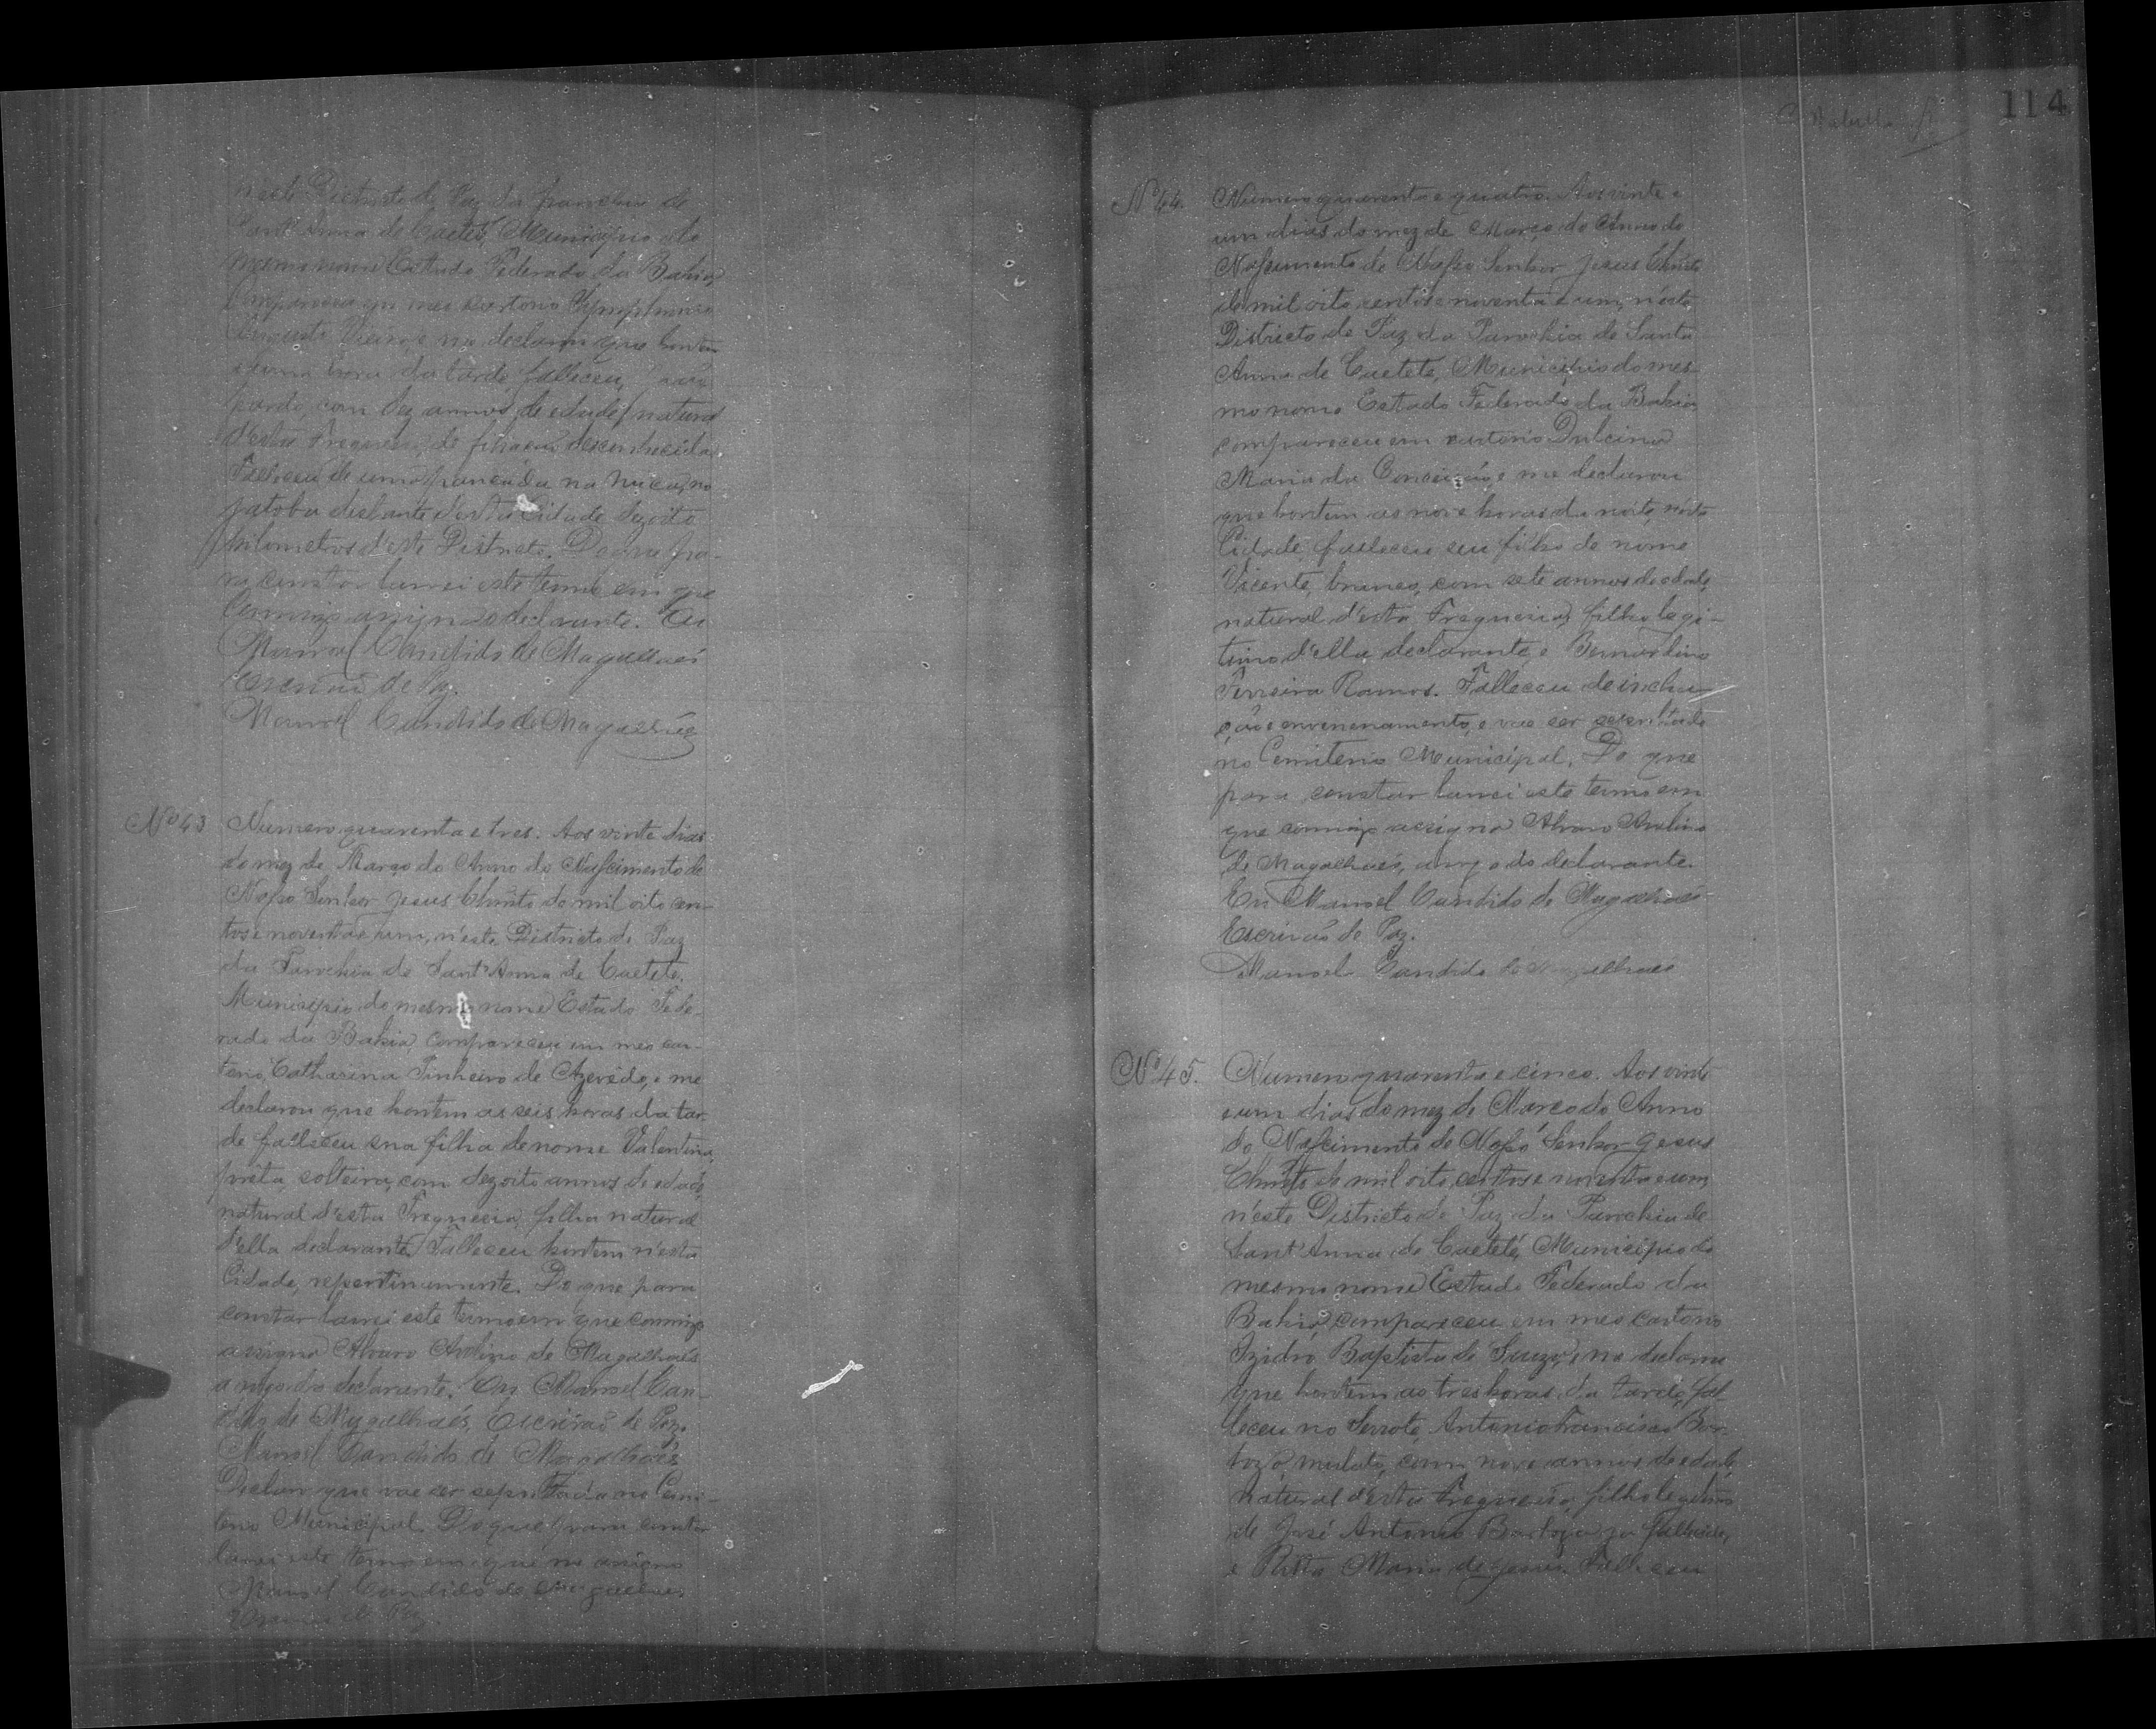 n'este Districto de Paz da Parochia de
Sant'Anna de Caeteté, Municipio do
mesmo nome Estado Federado da Bahia,
compareceu em meo cartorio
Vieira, e me declarou que hontem
a uma hora da tarde falleceu,
pardo, com dez annos de edade, natural
d'esta Freguesia, de filiação desconhecida.
Falleceu de uma pancada na nuca, no
Jatoba distante d'esta Cidade dezoito
kilometros d'este Districto. Do que pa-
ra constar lavrei este termo em que
commigo assigna o declarante. Eu
Manoel Candido de Magalhaẽs
Escrivaõ de Paz.
Manoel Candido de Magalhaẽs
Nº 43 Numero quarenta e tres. Aos vinte dias
do mez de Março do Anno do Nascimento de
Nosso Senhor Jesus Christo de mil oito cen-
tos e noventa e um, n'este Districto de Paz
da Parochia de Sant'Anna de Caeteté,
Municipio do mesmo nome Estado Fede-
rado da Bahia, compareceu em meo car-
torio, Catharina Pinheiro de Azevêdo, e me
declarou que hontem as seis horas da tar-
de falleceu sua filha de nome Valentina,
prêta, solteira, com dezoito annos de edade,
natural d'esta Freguesia, filha natural
d'ella declarante. Falleceu hontem n'esta
Cidade, repentinamente. Do que para
constar lavrei este termo em que commigo
assigna Alvaro Avelino de Magalhaẽs
a rogo da declarante. Eu Manoel Can-
dido de Magalhaẽs, Escrivaõ de Paz.
Manoel Candido de Magalhaẽs
Declaro que vae ser sepultada no Cemi-
terio Municipal. Do que para constar
lavrei este termo em que me assigno
Manoel Candido de Magalhaẽs
Escrivaõ de Paz.
114
Nº 44. Numero quarenta e quatro. Aos vinte e
um dias do mez de Março do Anno do
Nascimento de Nosso Senhor Jesus Christo
de mil oito centos e noventa e um, n'este
Districto de Paz da Parochia de Santa
Anna de Caeteté, Municipio do mes-
mo nome Estado Federado da Bahia,
compareceu em cartorio Dulcina
Maria da Conceição e me declarou
que hontem as nove horas da noite, n'esta
Cidade falleceu seu filho de nome
Vicente, branco, com sete annos de edade,
natural d'esta Freguesia, filho legi-
timo d'ella declarante, e Bernardino
Ferreira Ramos. Falleceu de incha-
ção e envenenamento, e vae ser sepultado
no Cemiterio Municipal. Do que
para constar lavrei este termo em
que commigo assigna Alvaro Avelino
de Magalhaẽs, a rogo da declarante.
Eu Manoel Candido de Magalhaẽs
Escrivaõ de Paz.
Manoel Candido de Magalhaẽs
Nº 45. Numero quarenta e cinco. Aos vinte
e um dias do mez de Março do Anno
do Nascimento de Nosso Senhor Jesus
Christo de mil oito centos e noventa e um
n'este Districto de Paz da Parochia de
Sant'Anna de Caeteté, Municipio do
mesmo nome Estado Federado da
Bahia, compareceu em meo cartorio
Izidro Baptista de Souza, e me declarou
que hontem as tres horas da tarde, fal-
leceu no Serrote, Antonio Francisco Bar-
boza, mulato, com nove annos de edade,
natural d'esta Freguesia, filho legitimo
de José Antonio Barboza, ja fallecido,
e Ritta Maria de Jesus. Falleceu